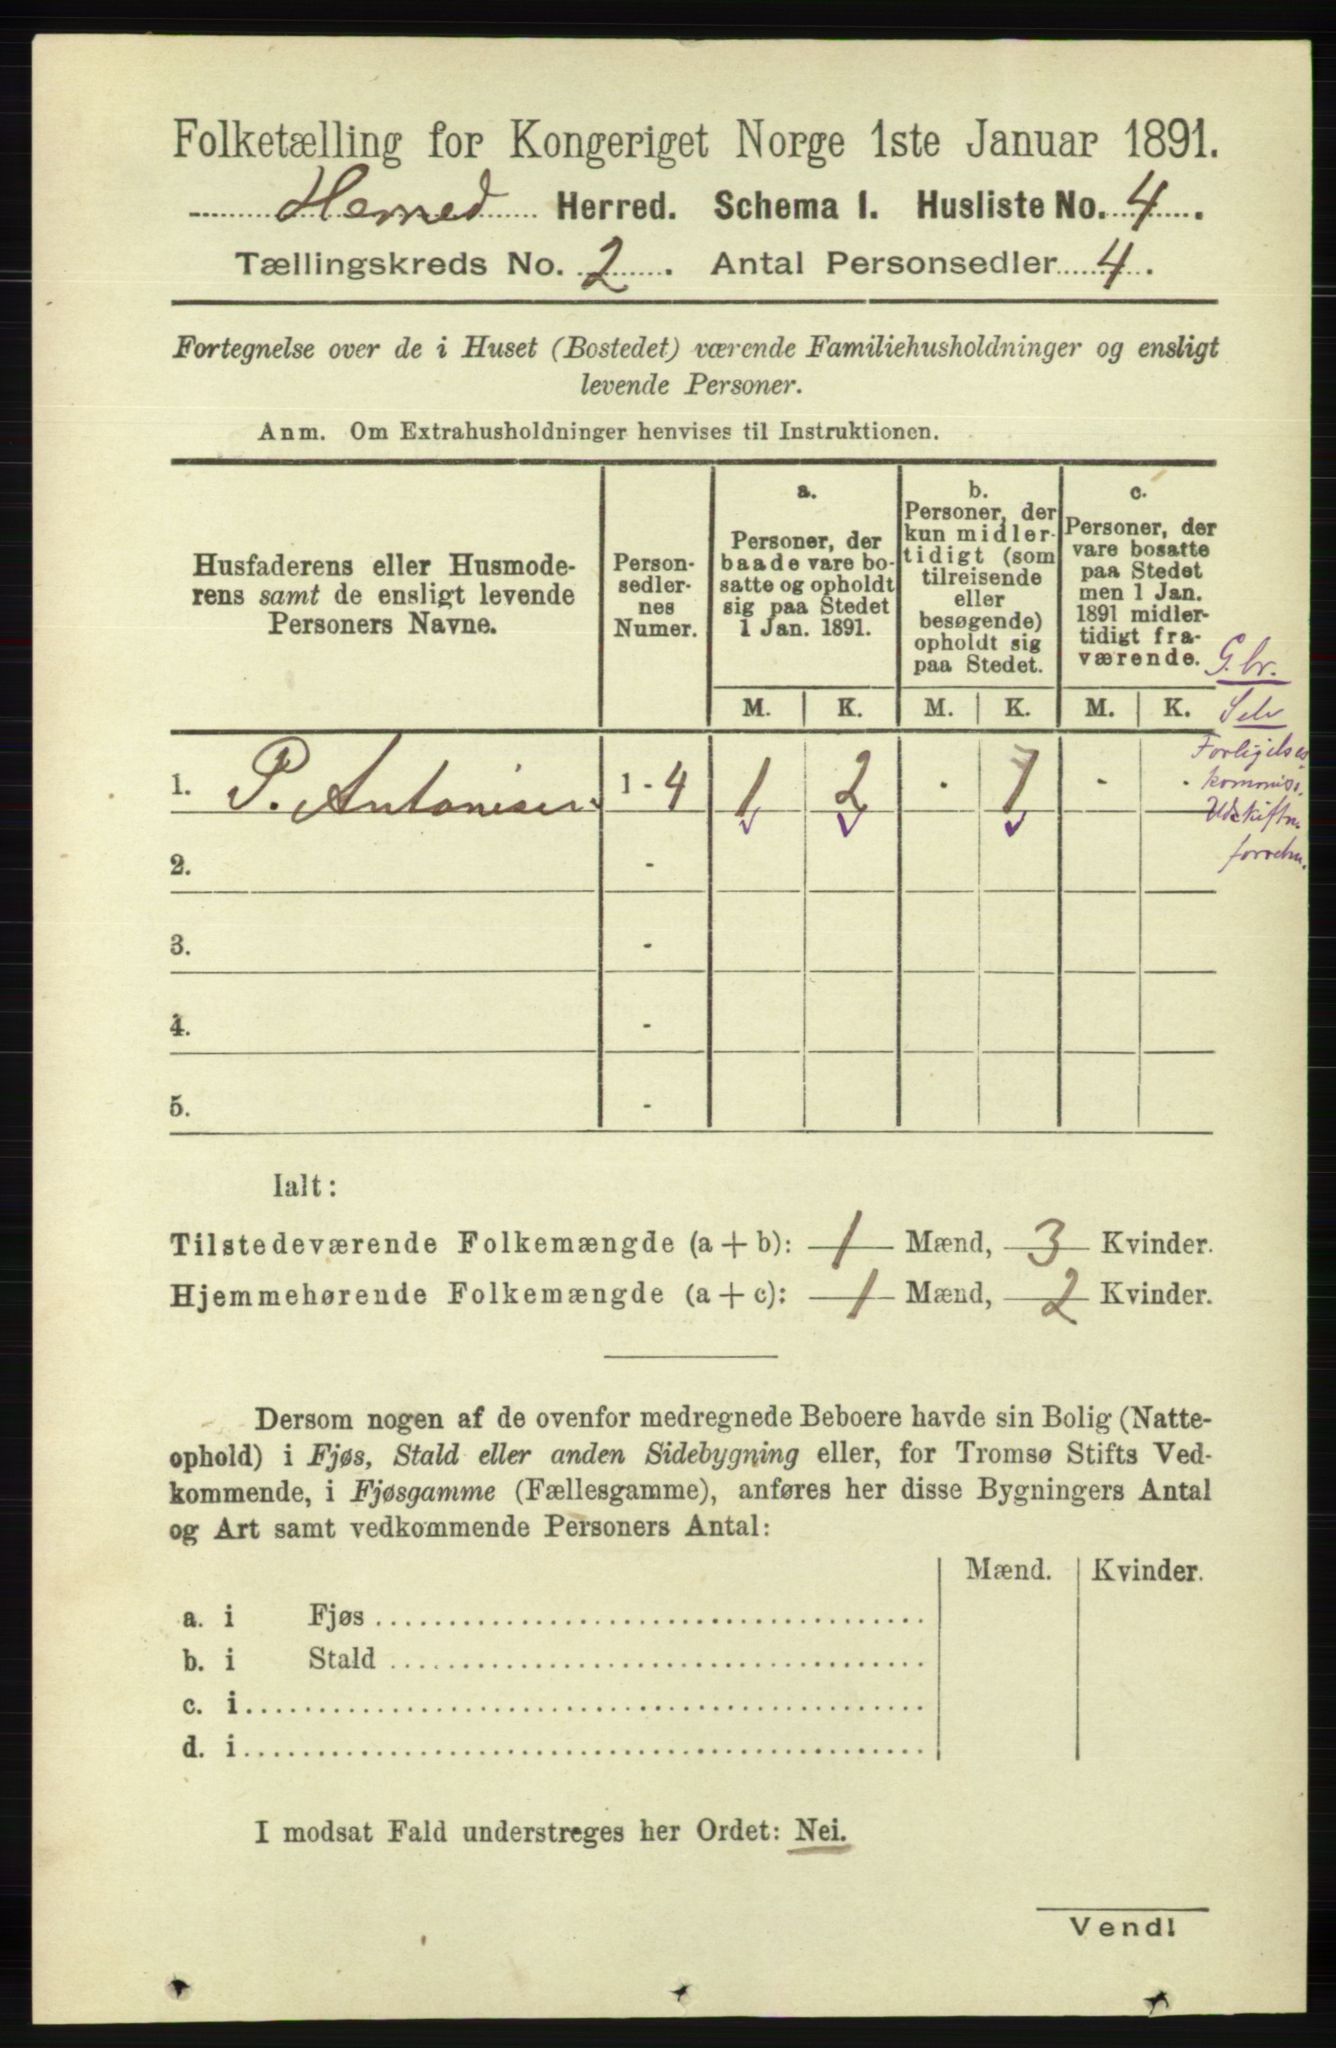 Folketælling for Kongeriget Norge 1ste Januar 1891.
Herred. Schema I. Husliste No. 4.
Tællingskreds No. 2. Antal Personsedler 4.
Fortegnelse over de i Huset (Bostedet) værende Familiehusholdninger og ensligt
levende Personer.
Anm. Om Extrahusholdninger henvises til Instruktionen.
Husfaderens eller Husmode-
rens samt de ensligt levende
Personers Navne.
Person-
sedler-
nes
Numer.
a.
Personer, der
baade vare bo-
satte og opholdt
sig paa Stedet
1 Jan. 1891.
b.
Personer, der
kun midler-
tidigt (som
tilreisende
eller
besøgende)
opholdt sig
paa Stedet.
c.
Personer, der
vare bosatte
paa Stedet
men 1 Jan.
1891 midler-
tidigt fra-
værende.
M. K. M. K. M. K.
G.br.
Selv
Forligelses
kommiss.
Udskiftn.
forretn.
1. P. Antonisen. 1 - 4 1 2 . 1 - .
2. -
3. -
4. -
5. -
Ialt:
Tilstedeværende Folkemængde (a + b): 1 Mænd, 3 Kvinder.
Hjemmehørende Folkemængde (a + c): 1 Mænd, 2 Kvinder.
Dersom nogen af de ovenfor medregnede Beboere havde sin Bolig (Natte-
ophold) i Fjøs, Stald eller anden Sidebygning eller, for Tromsø Stifts Ved-
kommende, i Fjøsgamme (Fællesgamme), anføres her disse Bygningers Antal
og Art samt vedkommende Personers Antal:
Mænd. Kvinder.
a. i Fjøs
b. i Stald
c. i
d. i
I modsat Fald understreges her Ordet: Nei.
Vend!